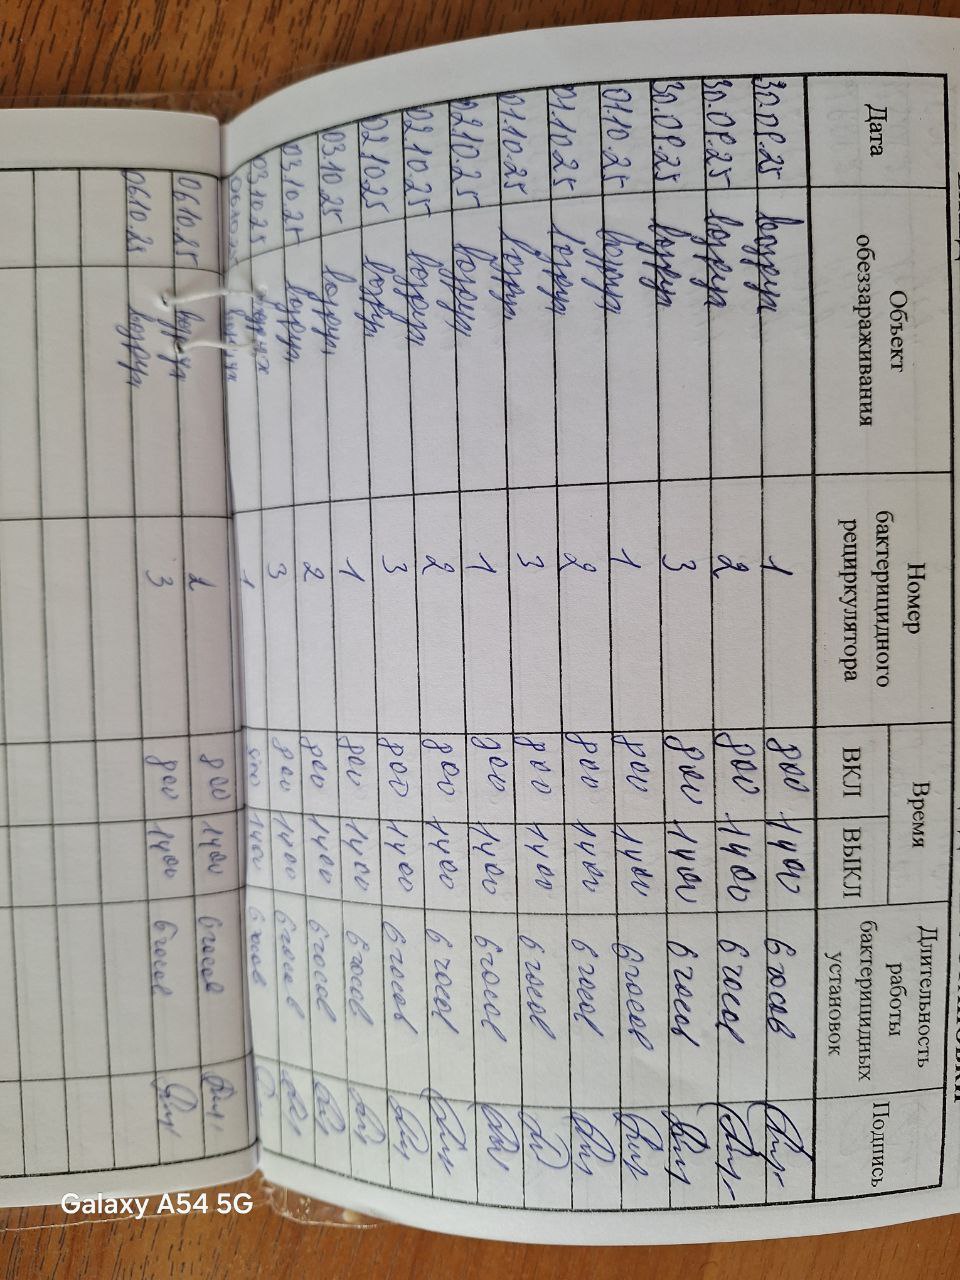 Дата Объект обеззараживания Номер бактерицидного рециркулятора Время ВКЛ ВЫКЛ Длительность работы бактерицидных установок Подпись
30.09.25 воздух 1 800 1400 6 часов
30.09.25 воздух 2 800 1400 6 часов
30.09.25 воздух 3 800 1400 6 часов
01.10.25 воздух 1 800 1400 6 часов
01.10.25 воздух 2 800 1400 6 часов
01.10.25 воздух 3 800 1400 6 часов
02.10.25 воздух 1 800 1400 6 часов
02.10.25 воздух 2 800 1400 6 часов
02.10.25 воздух 3 800 1400 6 часов
03.10.25 воздух 1 800 1400 6 часов
03.10.25 воздух 2 800 1400 6 часов
03.10.25 воздух 3 800 1400 6 часов
06.10.25 воздух 1 800 1400 6 часов
06.10.25 воздух 2 800 1400 6 часов
06.10.25 воздух 3 800 1400 6 часов
Galaxy A54 5G